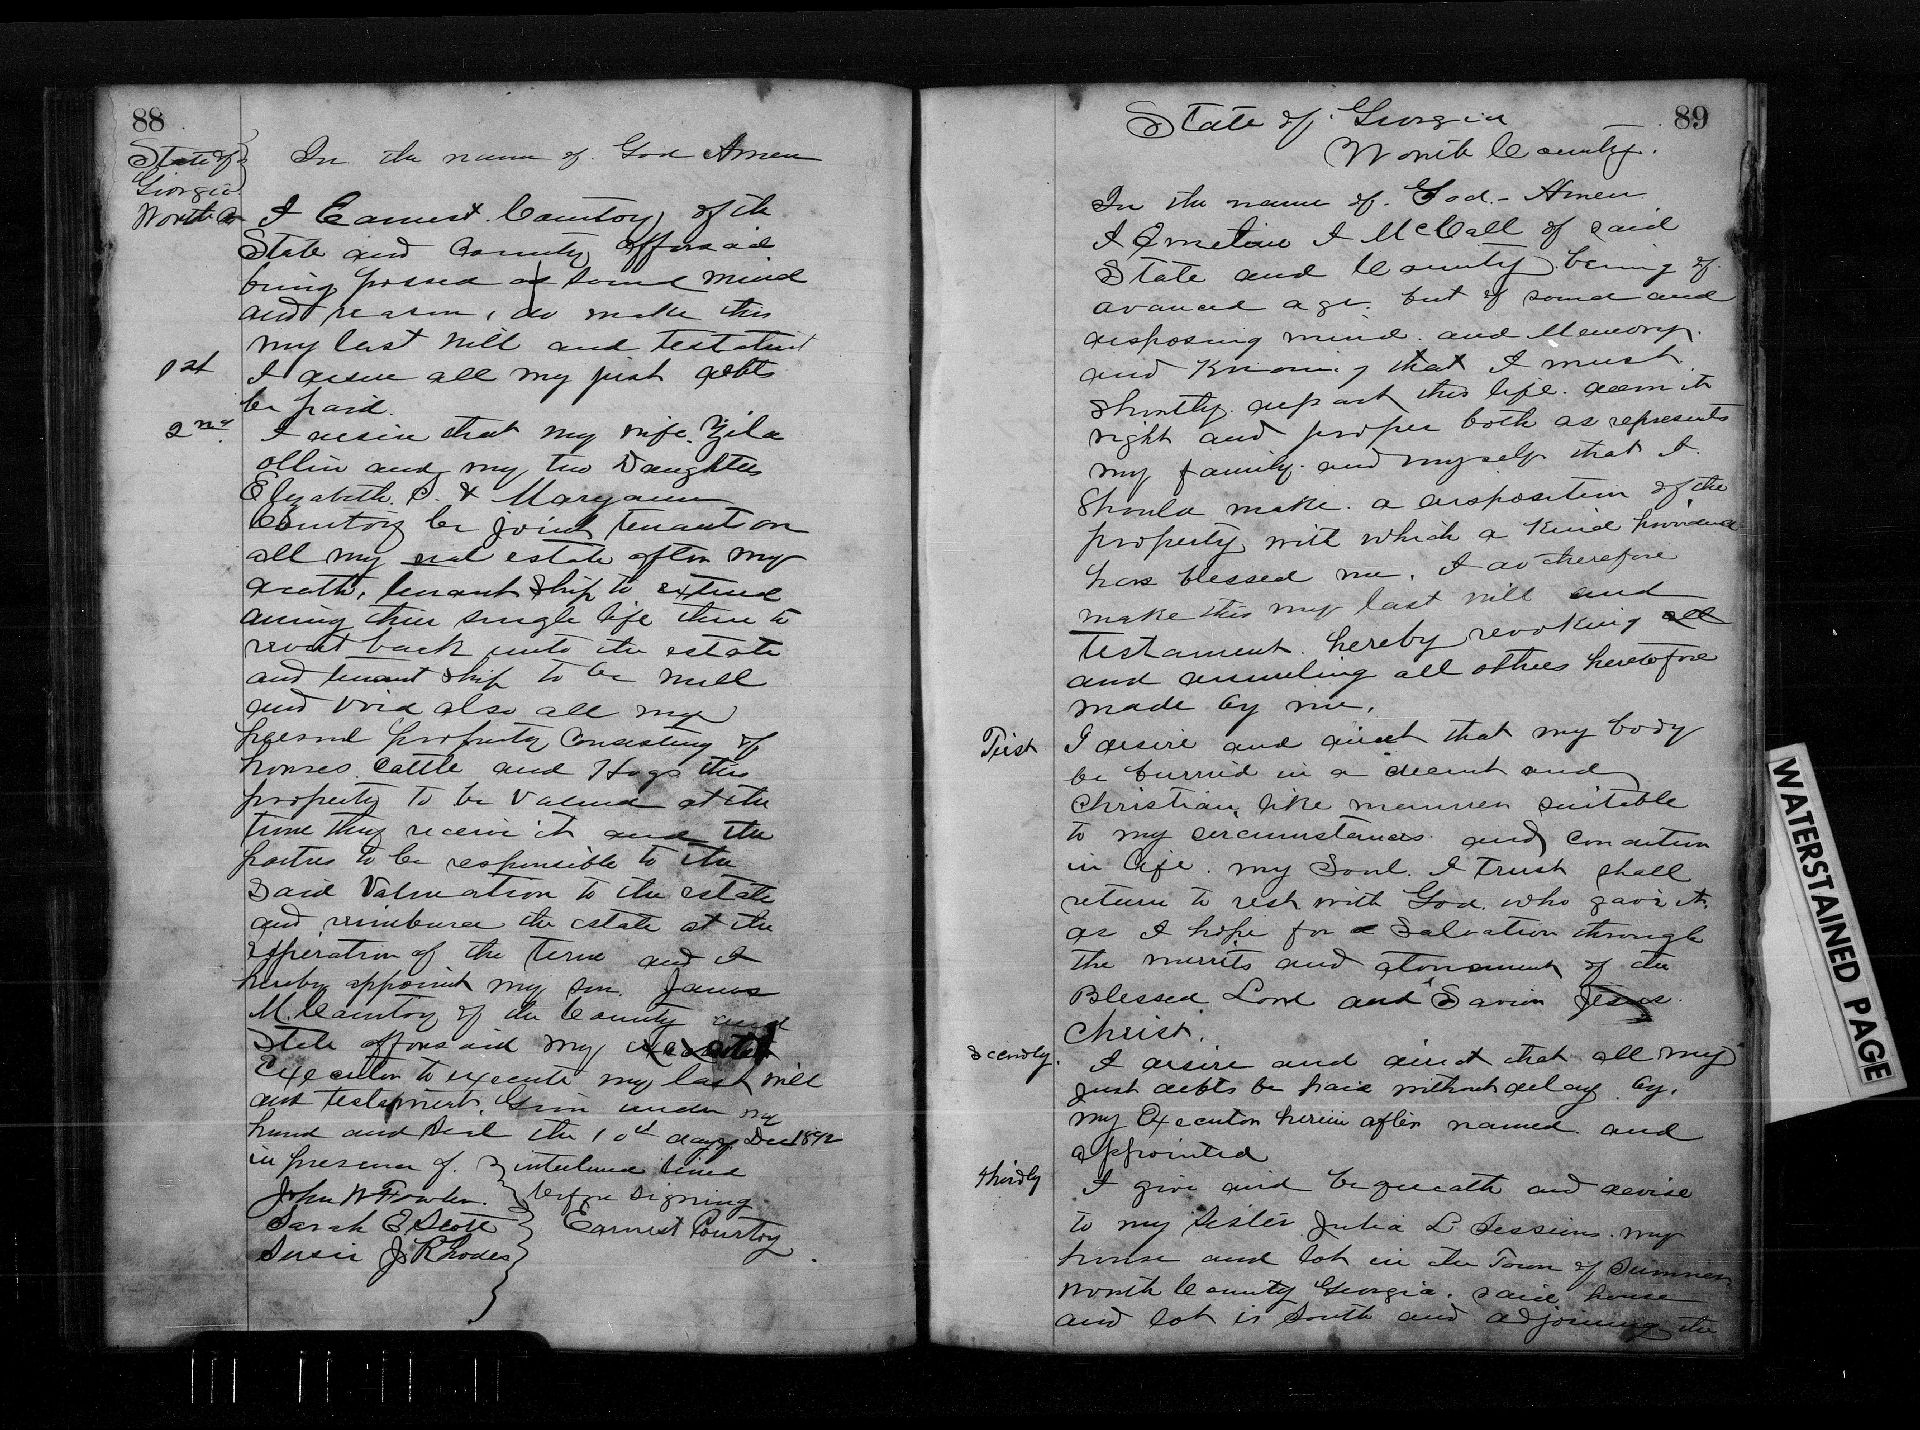 88
State of
Georgia
Worth Co
In the name of God Amen
I Earnest Courtoy, of the
State and County afforsaid
being possed of sound mind
and reason, do make this
my last will and testatint
1st
I desire all my just debts
be paid.
2nd
I desire that my wife
and my two Daughters
Elizabeth C. & Maryann
Courtoy be joint tenant on
all my real estate after my
death, tenant ship to extend
during their single life then to
revert back unto the estate
and tenant ship to be null
and void also all my
personal property consisting of
horses cattle and Hogs this
property to be valued at the
time they receive it and the
parties to be responsible to the
said Valuation to the estate
and reimburse the estate at the
experation of the term and I
hereby appoint my son James
M. Courtoy of the County and
State afforsaid my
Executor to execute my last will
and testament. Given under my
hand and seal the 10th day Dec 1892
in presence of. interlined lined
John W Fowler. before signing
Sarah E Scott Earnest Courtoy
Susie J Rhodes
89
State of Georgia
Worth County.
In the name of God - Amen
I Emeline I McCall of said
State and County being of
avanced age. but of sound and
disposing mind and Memory.
and Knowing that I must
shortly depart this life. deem it
right and proper both as represents
my family. and myself that I
should make a disposition of the
property with which a Kind providence
has blessed me. I do therefore
make this my last will and
testament. hereby revoking all
and annuling all others heretofore
made by me.
First
I desire and direct that my body
be burried in a decent and
Christian like manner suitable
to my circumstances and condition
in life. my Soul. I trust shall
return to rest with God who gave it.
as I hope for a Salvation through
the merrits and atonement of the
Blessed Lord and Savior Jesus
Christ.
Secondly.
I desire and direct that all my
just debts be paid without delay by.
my Executor herein after named and
appointed
thirdly
I give and bequeath and devise
to my Sister Julia L Sessions. my
house and lot in the Town of Sumner
Worth County Georgia. said house
and lot is South and adjoining the
WATERSTAINED PAGE